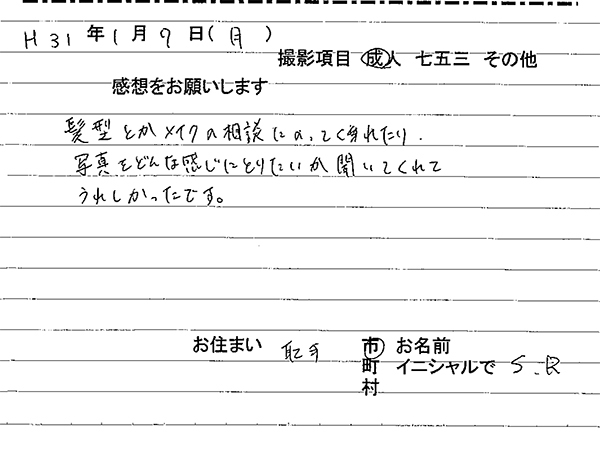 H31年1月7日(月)
撮影項目 成人 七五三 その他
感想をお願いします
髪型とかメイクの相談にのってくれたり、
写真をどんな感じにとりたいか聞いてくれて
うれしかったです。
お住まい 取手 市 お名前
町 イニシャルで S.R
村